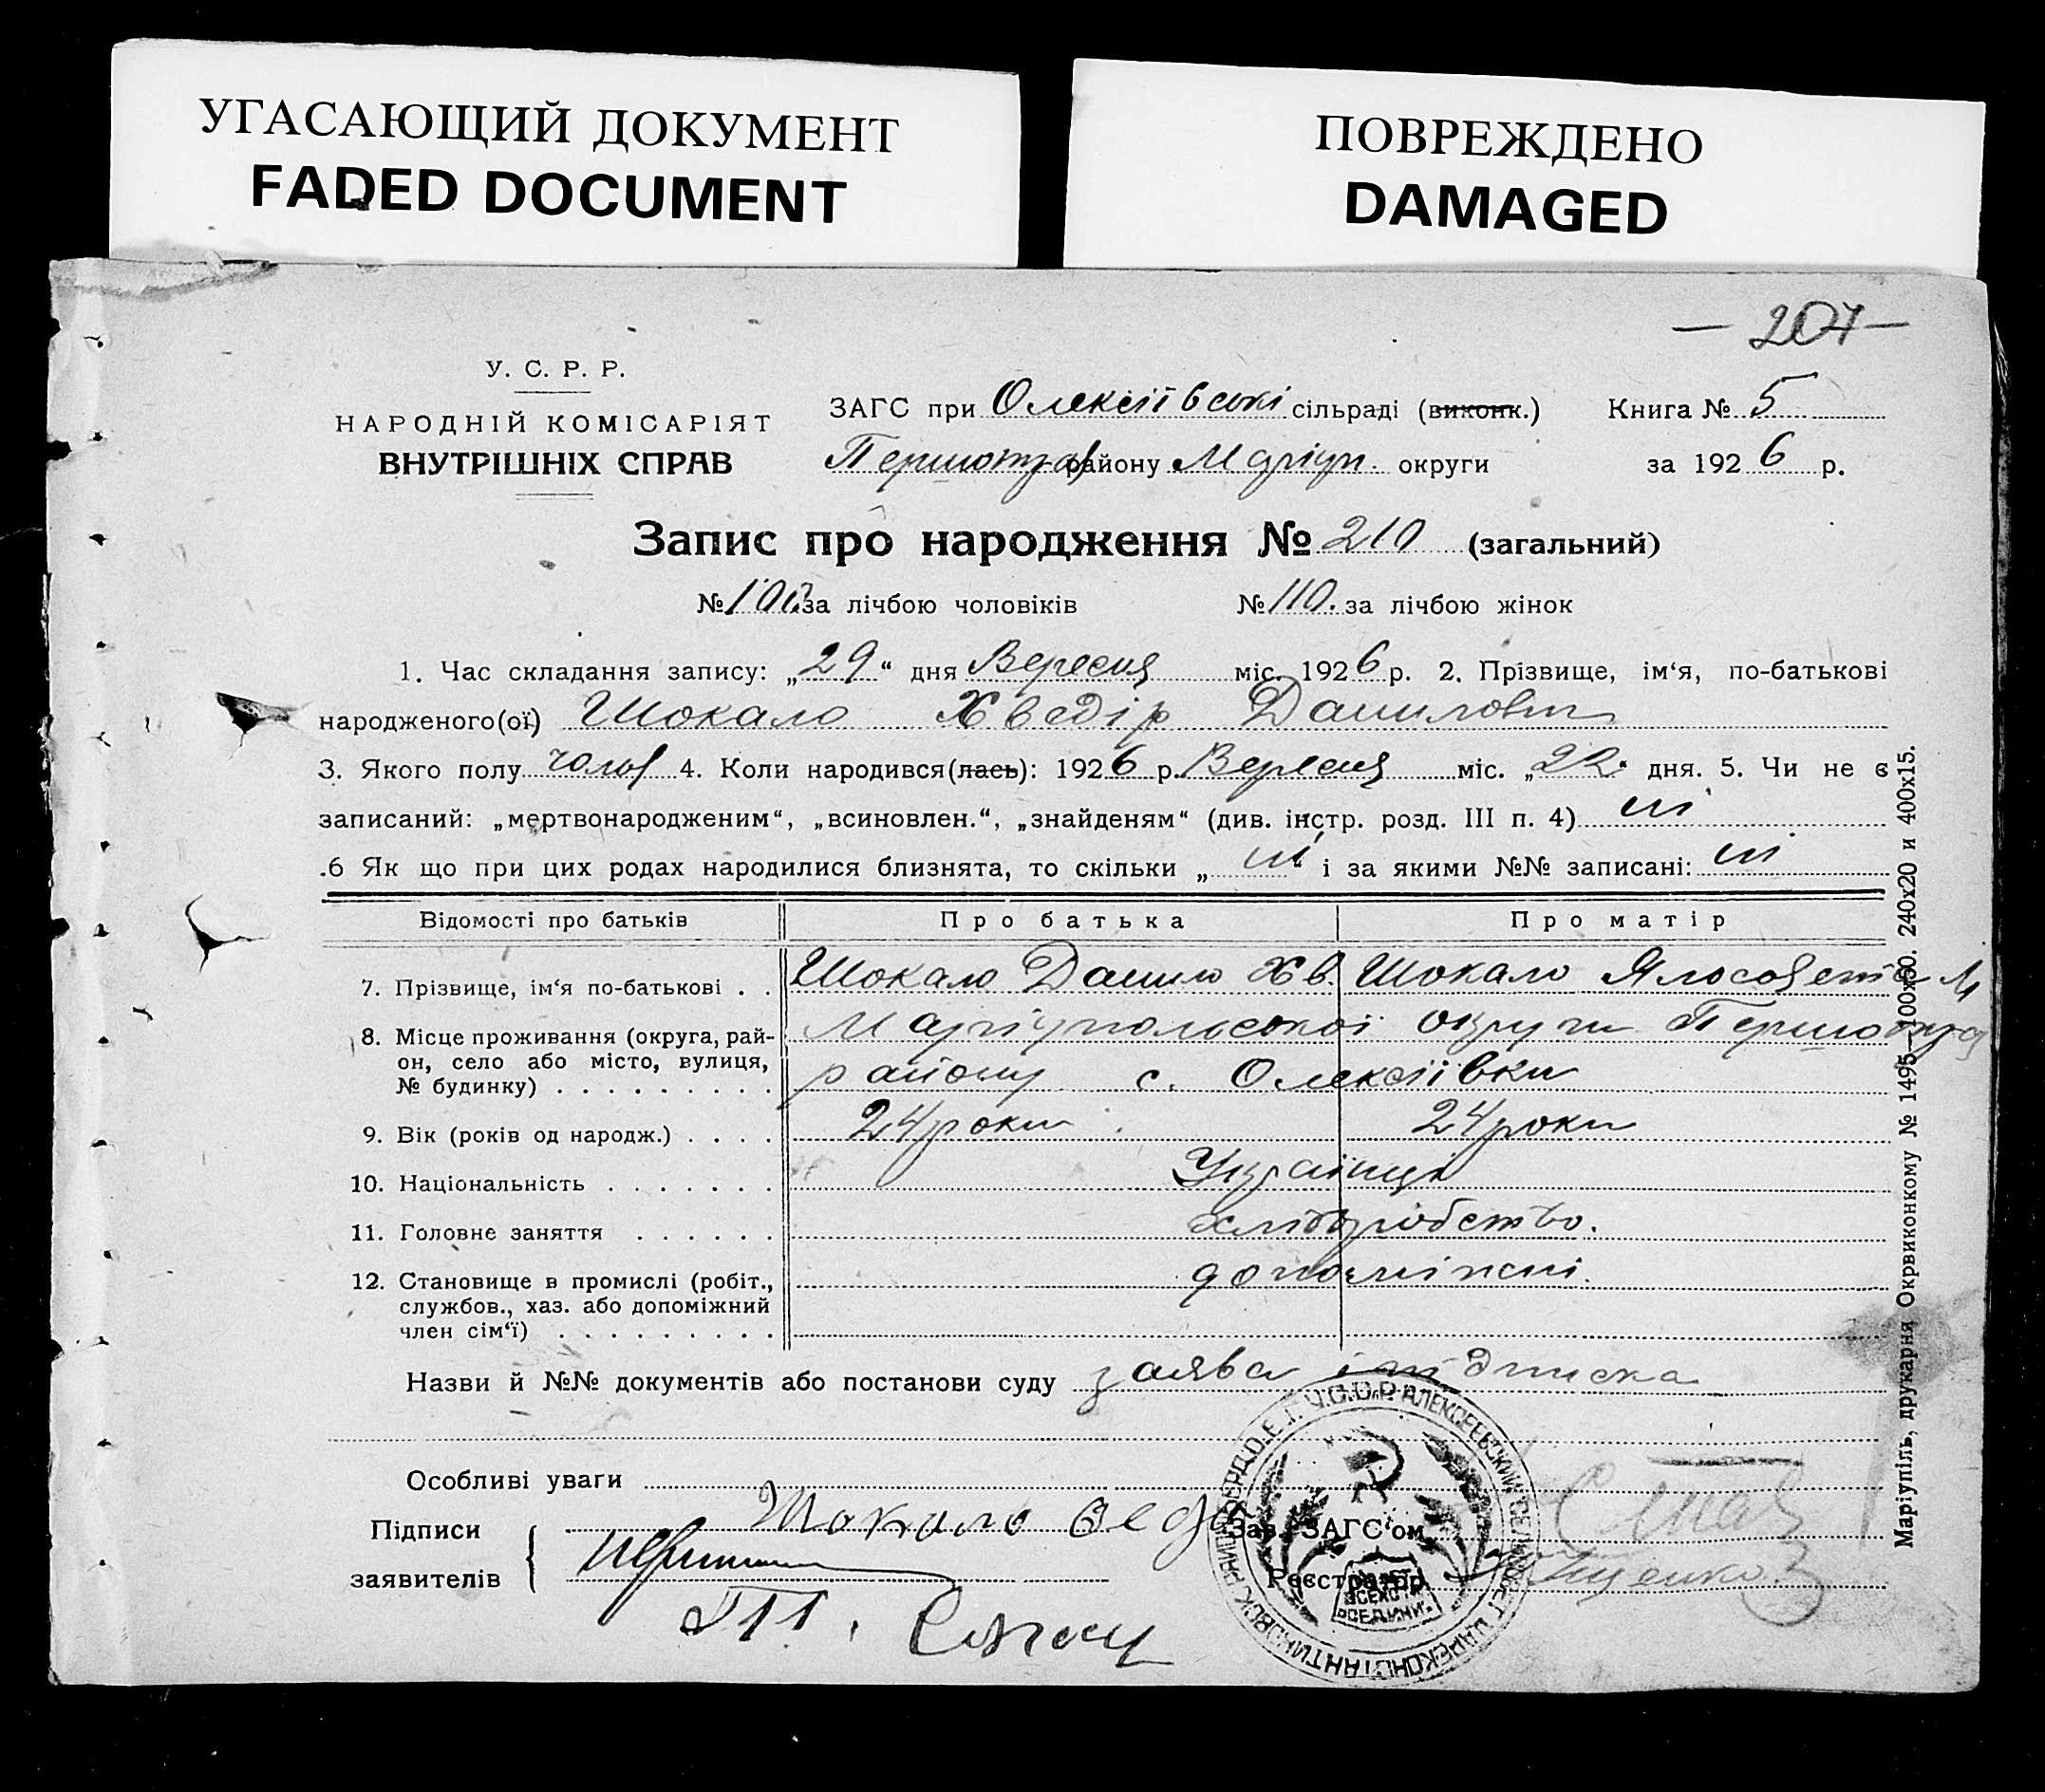 УГАСАЮЩИЙ ДОКУМЕНТ
FADED DOCUMENT
ПОВРЕЖДЕНО
DAMAGED
— 207 —
У. С. Р. Р.
НАРОДНІЙ КОМІСАРІЯТ
ВНУТРІШНІХ СПРАВ
ЗАГС при Олексіївські сільраді (виконк.) Книга № 5
Першотра району Маріуп. округи за 1926 р.
Запис про народження № 210 (загальний)
№ 100 за лічбою чоловіків № 110. за лічбою жінок
1. Час складання запису: „29“ дня Вересня міс. 1926 р. 2. Прізвище, ім‘я, по-батькові
народженого(ої) Шокало Хведір Данилович
3. Якого полу чолов 4. Коли народився(лась): 1926 р. Вересня міс. „22“ дня. 5. Чи не є
записаний: „мертвонародженим“, „всиновлен.“, „знайденям“ (див. інстр. розд. III п. 4) ні
.6 Як що при цих родах народилися близнята, то скільки „ні“ і за якими №№ записані: ні
Відомості про батьків Про батька Про матір
7. Прізвище, ім‘я по-батькові . . Шокало Данило Хв. Шокало Ялосовета М
8. Місце проживання (округа, рай-
он, село або місто, вулиця,
№ будинку) . . . . . . . . .
Маріупольської округи Першотра
району с. Олексіївки
9. Вік (років од народж.) . . . . 24 роки 24 роки
10. Національність . . . . . . . Українці
11. Головне заняття . . . . . . хліборобство.
12. Становище в промислі (робіт.,
службов., хаз. або допоміжний
член сім‘ї) . . . . . . . . .
допоміжні.
Назви й №№ документів або постанови суду заява і підписка
Особливі уваги
Підписи
заявителів
Шокало Федо
Зав. ЗАГС‘ом
Реєстратор
У.С.С.Р. АЛЕКСЕЕВСКИЙ СЕЛЬСОВЕТ ЦАРЕКОНСТАНТИНОВСК.
Маріупіль, друкарня Окрвиконкому № 1495—100х50. 240х20 и 400х15.